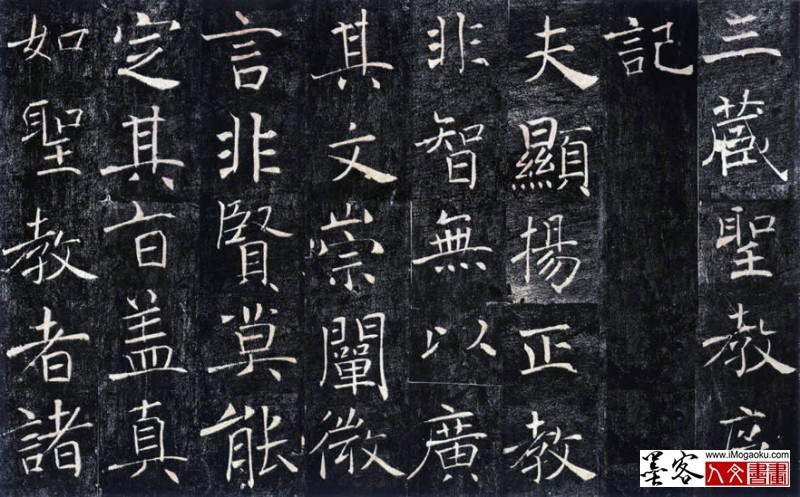 三藏聖教序
記
夫顯揚正教
非智無以廣
其文崇闡微
言非賢莫能
定其旨盖真
如聖教者諸
墨客
www.iMogaoku.com
人文書畫